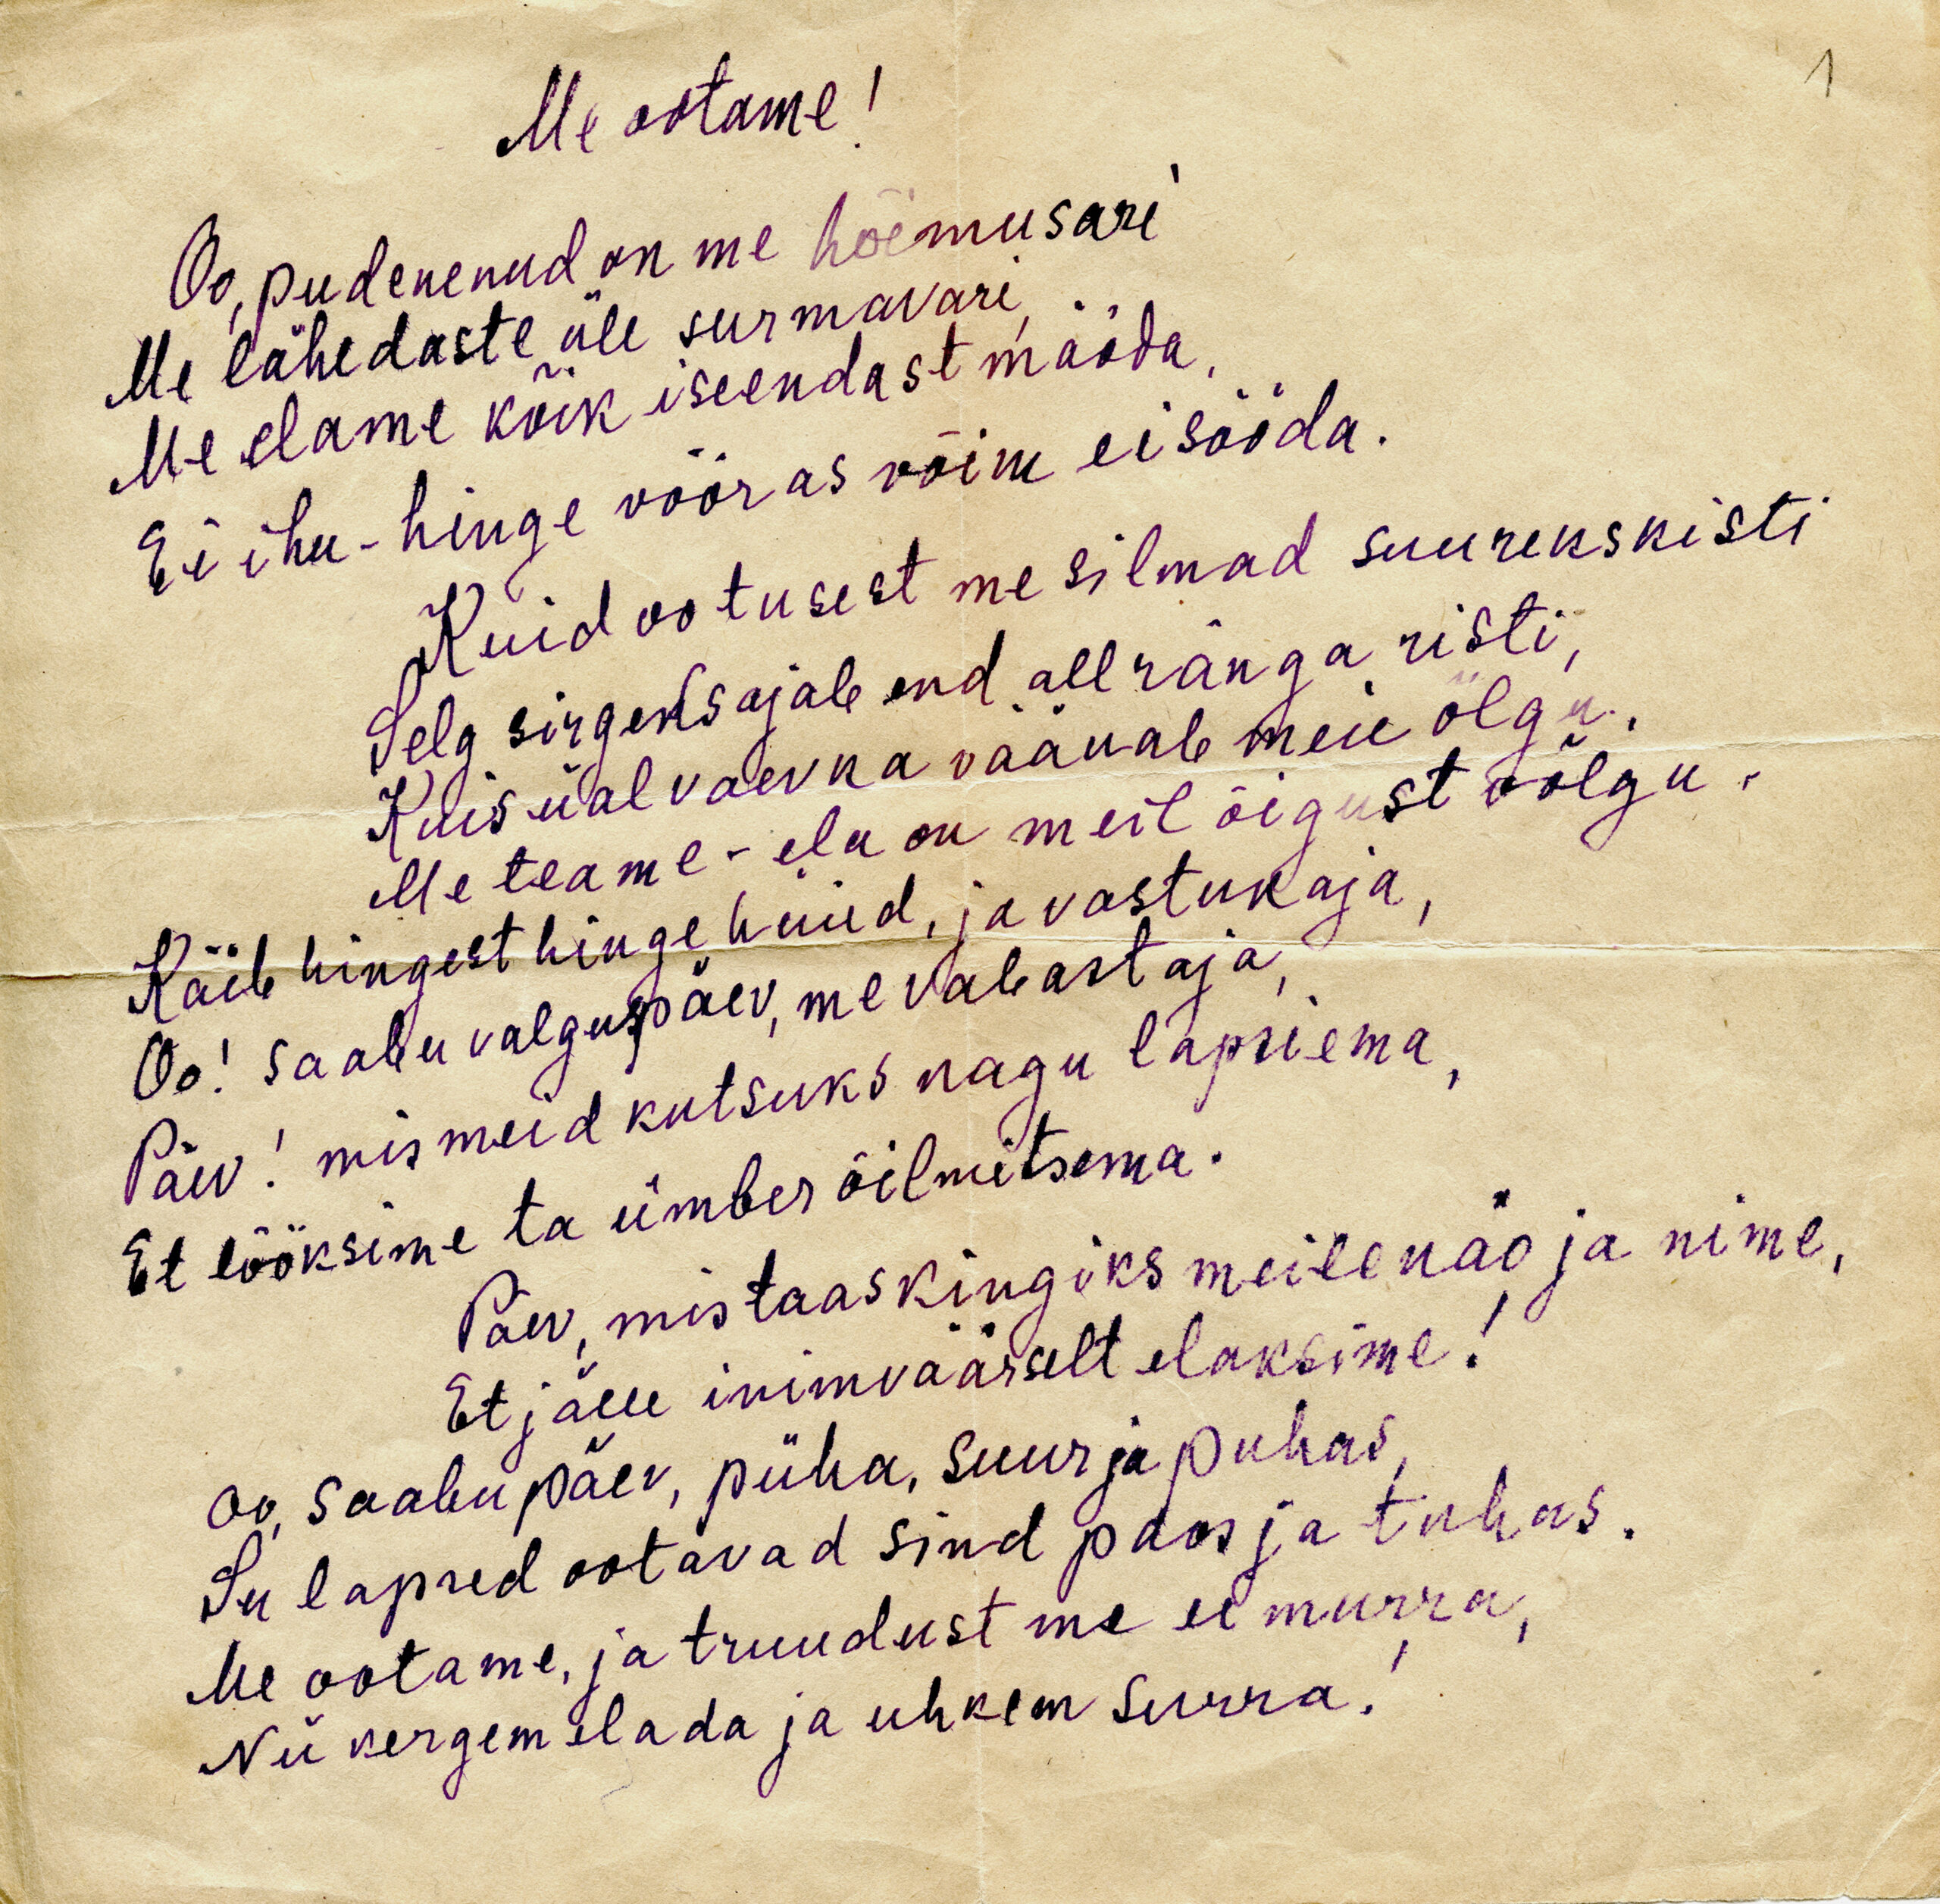 1
Me ootame!
Oo, pudenenud on me hõimusari
Me lähedaste üle surmavari,
Me elame kõik iseendast mööda,
Ei ihu-hinge võõras võim ei sööda.
Kuid ootusest me silmad suureks kisti
Selg sirgeks ajab end all ränga risti,
Kuis iial vaevka väänab meie õlgu,
Me teame - elu on meil õigust võlgu.
Käib hingest hinge hüüd, ja vastukaja,
Oo! saabu valguspäev, me vabastaja,
Päev! mis meid kutsuks nagu lapsi ema,
Et lööksime ta ümber õilmitsema.
Päev, mis taas kingiks meile näo ja nime,
Et jälle inimväärselt elaksime!
Oo, saabu päev, püha, suur ja puhas,
Su lapsed ootavad sind paos ja tuhas.
Me ootame, ja truudust me ei murra,
Nii kergem elada ja uhkem surra!